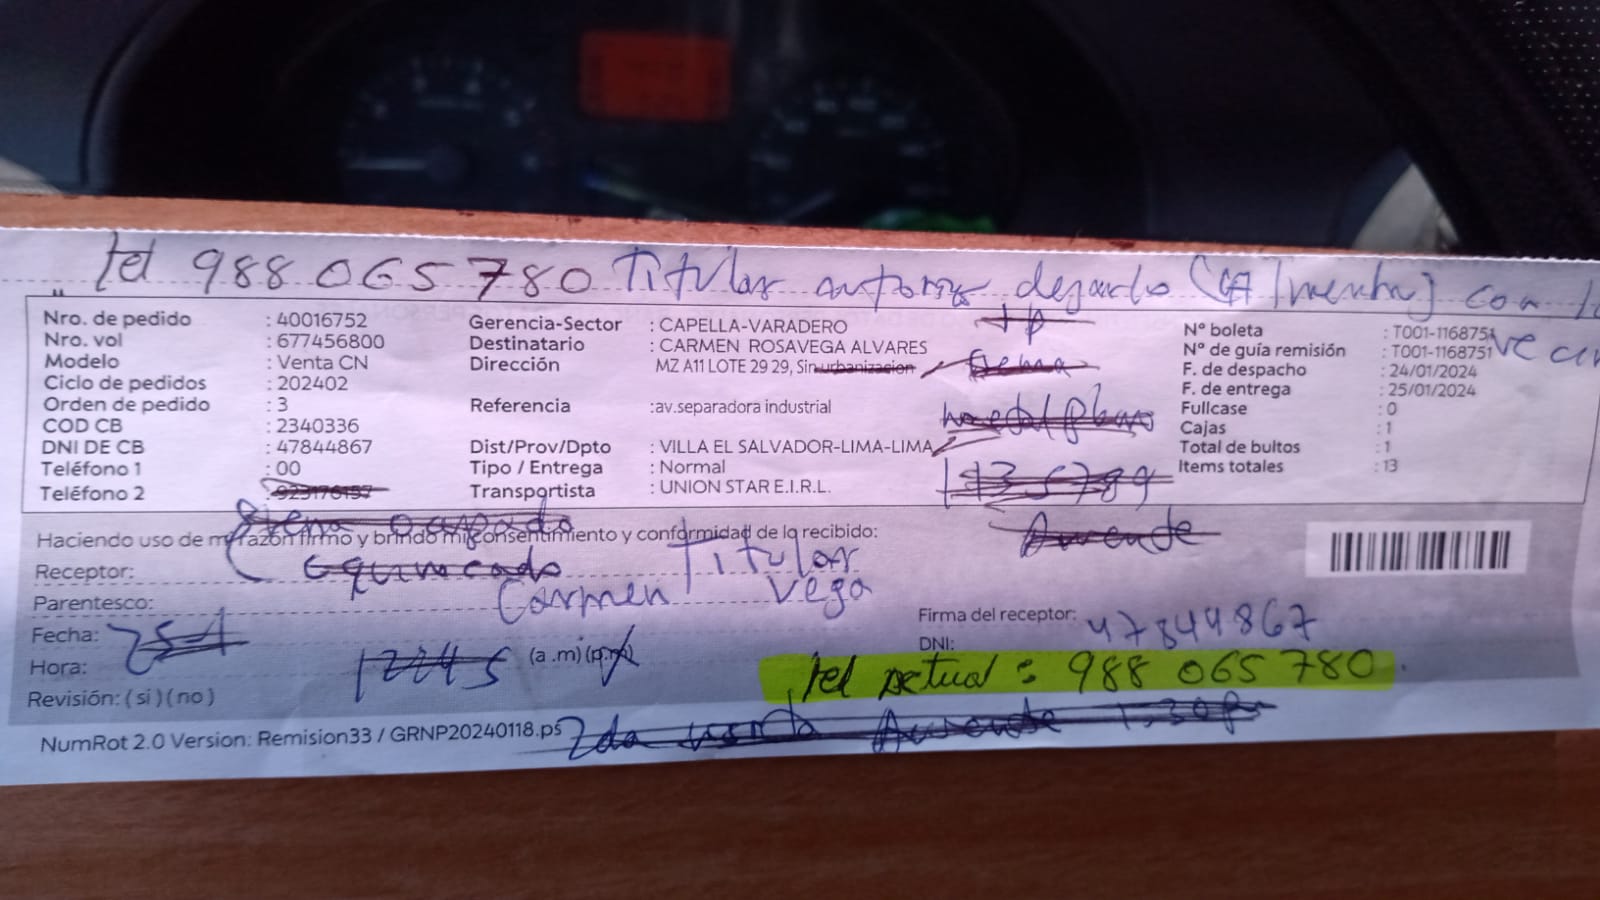 tel 988 065 780 Titular autoriza dejarlo con la
vecin
Nro. de pedido : 40016752
Nro. vol : 677456800
Modelo : Venta CN
Ciclo de pedidos : 202402
Orden de pedido : 3
COD CB : 2340336
DNI DE CB : 47844867
Teléfono 1 : 00
Teléfono 2 : 923176157
Gerencia-Sector : CAPELLA-VARADERO
Destinatario : CARMEN ROSAVEGA ALVARES
Dirección MZ A11 LOTE 29 29, Sin urbanizacion
Referencia :av.separadora industrial
Dist/Prov/Dpto : VILLA EL SALVADOR-LIMA-LIMA
Tipo / Entrega : Normal
Transportista : UNION STAR E.I.R.L.
1p
Ausente
N° boleta : T001-1168751
N° de guía remisión : T001-1168751
F. de despacho : 24/01/2024
F. de entrega : 25/01/2024
Fullcase : 0
Cajas : 1
Total de bultos : 1
Items totales : 13
Haciendo uso de mi razón firmo y brindo mi consentimiento y conformidad de lo recibido:
Receptor: equivocado Titular
Carmen Vega
Parentesco:
Fecha: 25-1
Hora: 1245 (a .m) (p.m)
Revisión: ( si ) ( no )
Firma del receptor:
DNI: 47844867
tel actual : 988 065 780.
NumRot 2.0 Version: Remision33 / GRNP20240118.ps
2da visita Ausente 1:30pm